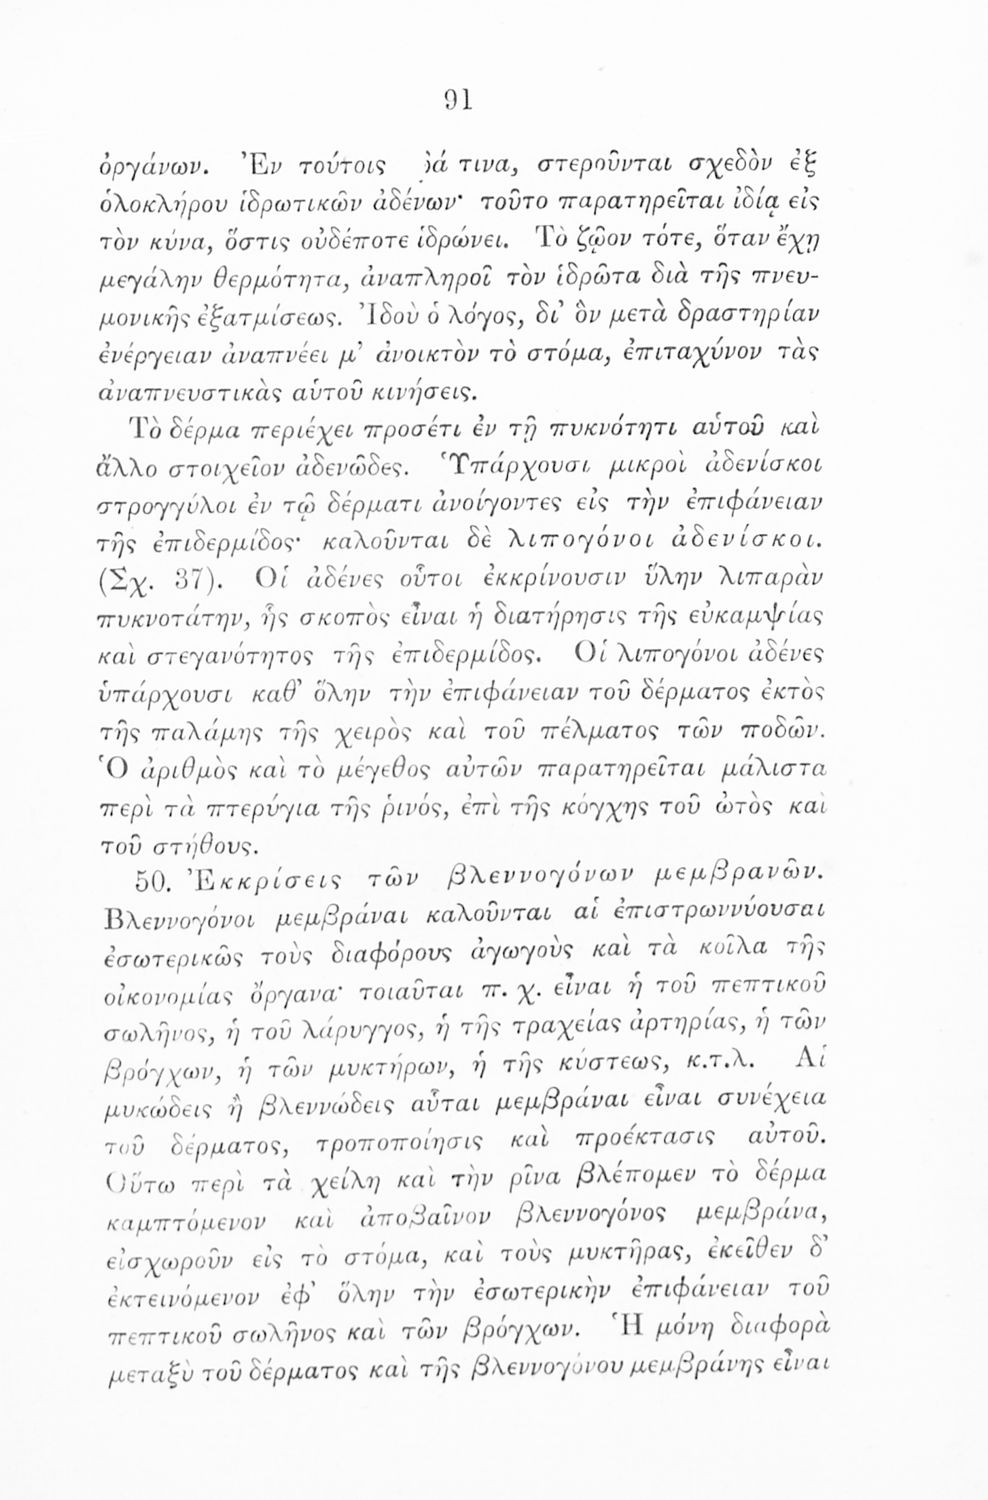 91
ὀργάνων. Ἐν τούτοις τινα, στεροῦνται σχεδὸν ἐξ
ὁλοκλήρου ἱδρωτικῶν ἀδένων· τοῦτο παρατηρεῖται ἰδίᾳ εἰς
τὸν κύνα, ὅστις οὐδέποτε ἱδρώνει. Τὸ ζῷον τότε, ὅταν ἔχῃ
μεγάλην θερμότητα, ἀναπληροῖ τὸν ἱδρῶτα διὰ τῆς πνευ-
μονικῆς ἐξατμίσεως. Ἰδοὺ ὁ λόγος, δι’ ὃν μετὰ δραστηρίαν
ἐνέργειαν ἀναπνέει μ’ ἀνοικτὸν τὸ στόμα, ἐπιταχύνον τὰς
ἀναπνευστικὰς αὑτοῦ κινήσεις.
Τὸ δέρμα περιέχει προσέτι ἐν τῇ πυκνότητι αὑτοῦ καὶ
ἄλλο στοιχεῖον ἀδενῶδες. Ὑπάρχουσι μικροὶ ἀδενίσκοι
στρογγύλοι ἐν τῷ δέρματι ἀνοίγοντες εἰς τὴν ἐπιφάνειαν
τῆς ἐπιδερμίδος· καλοῦνται δὲ λιπογόνοι ἀδενίσκοι.
(Σχ. 37). Οἱ ἀδένες οὗτοι ἐκκρίνουσιν ὕλην λιπαρὰν
πυκνοτάτην, ἧς σκοπὸς εἶναι ἡ διατήρησις τῆς εὐκαμψίας
καὶ στεγανότητος τῆς ἐπιδερμίδος. Οἱ λιπογόνοι ἀδένες
ὑπάρχουσι καθ’ ὅλην τὴν ἐπιφάνειαν τοῦ δέρματος ἐκτὸς
τῆς παλάμης τῆς χειρὸς καὶ τοῦ πέλματος τῶν ποδῶν.
Ὁ ἀριθμὸς καὶ τὸ μέγεθος αὐτῶν παρατηρεῖται μάλιστα
περὶ τὰ πτερύγια τῆς ῥινός, ἐπὶ τῆς κόγχης τοῦ ὠτὸς καὶ
τοῦ στήθους.
50. Ἐκκρίσεις τῶν βλεννογόνων μεμβρανῶν.
Βλεννογόνοι μεμβράναι καλοῦνται αἱ ἐπιστρωννύουσαι
ἐσωτερικῶς τοὺς διαφόρους ἀγωγοὺς καὶ τὰ κοῖλα τῆς
οἰκονομίας ὄργανα· τοιαῦται π. χ. εἶναι ἡ τοῦ πεπτικοῦ
σωλῆνος, ἡ τοῦ λάρυγγος, ἡ τῆς τραχείας ἀρτηρίας, ἡ τῶν
βρόγχων, ἡ τῶν μυκτήρων, ἡ τῆς κύστεως, κ.τ.λ. Αἱ
μυκώδεις ἢ βλεννώδεις αὗται μεμβράναι εἶναι συνέχεια
τοῦ δέρματος, τροποποίησις καὶ προέκτασις αὐτοῦ.
Οὕτω περὶ τὰ χείλη καὶ τὴν ῥῖνα βλέπομεν τὸ δέρμα
καμπτόμενον καὶ ἀποβαῖνον βλεννογόνος μεμβράνα,
εἰσχωροῦν εἰς τὸ στόμα, καὶ τοὺς μυκτῆρας, ἐκεῖθεν δ’
ἐκτεινόμενον ἐφ’ ὅλην τὴν ἐσωτερικὴν ἐπιφάνειαν τοῦ
πεπτικοῦ σωλῆνος καὶ τῶν βρόγχων. Ἡ μόνη διαφορὰ
μεταξὺ τοῦ δέρματος καὶ τῆς βλεννογόνου μεμβράνης εἶναι